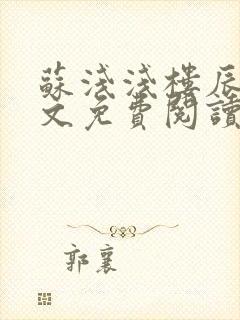 蘇淺淺樓辰
文免費閱讀
郭襄